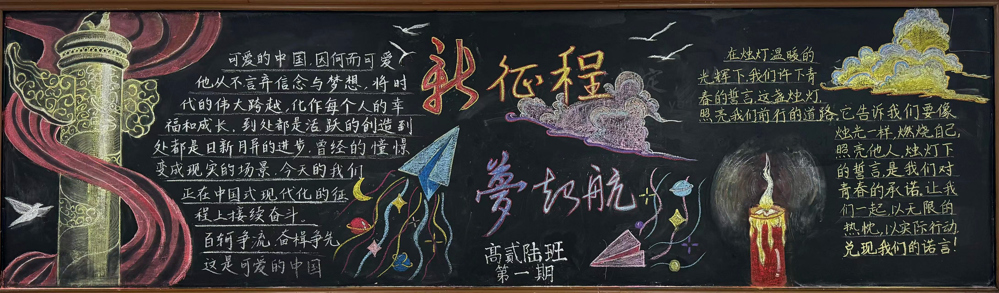 可爱的中国因何而可爱
他从不言弃信念与梦想，将时
代的伟大跨越，化作每个人的幸
福和成长，到处都是活跃的创造到
处都是日新月异的进步，曾经的憧憬
变成现实的场景，今天的我们
正在中国式现代化的征
程上接续奋斗。
百舸争流，奋楫争先
这是可爱的中国
新征程
夢起航
高貳陆班
第一期
在烛灯温暖的
光辉下，我们许下青
春的誓言，这盏烛灯
照亮我们前行的道路，它告诉我们要像
烛光一样，燃烧自己，
照亮他人，烛灯下
的誓言，是我们对
青春的承诺，让我
们一起，以无限的
热忱，以实际行动
兑现我们的诺言！